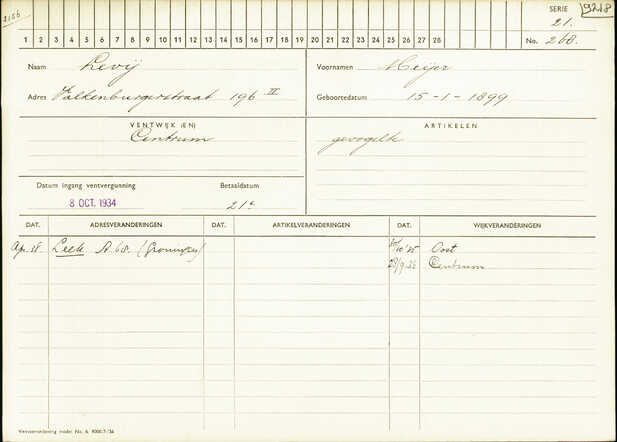 2186
9218
SERIE
21.
1 2 3 4 5 6 7 8 9 10 11 12 13 14 15 16 17 18 19 20 21 22 23 24 25 26 27 28
No. 268.
Naam Levij
Voornamen Meijer
Adres Valkenburgerstraat 196 II
Geboortedatum 15-1-1899
VENTWIJK (EN)
Centrum
ARTIKELEN
gevogelte
Datum ingang ventvergunning
Betaaldatum
8 OCT. 1934
21e
DAT. ADRESVERANDERINGEN DAT. ARTIKELVERANDERINGEN DAT. WIJKVERANDERINGEN
Leek A. 68. (Groningen)
Oost
28/9.36 Centrum
Ventverordening model No. 6.